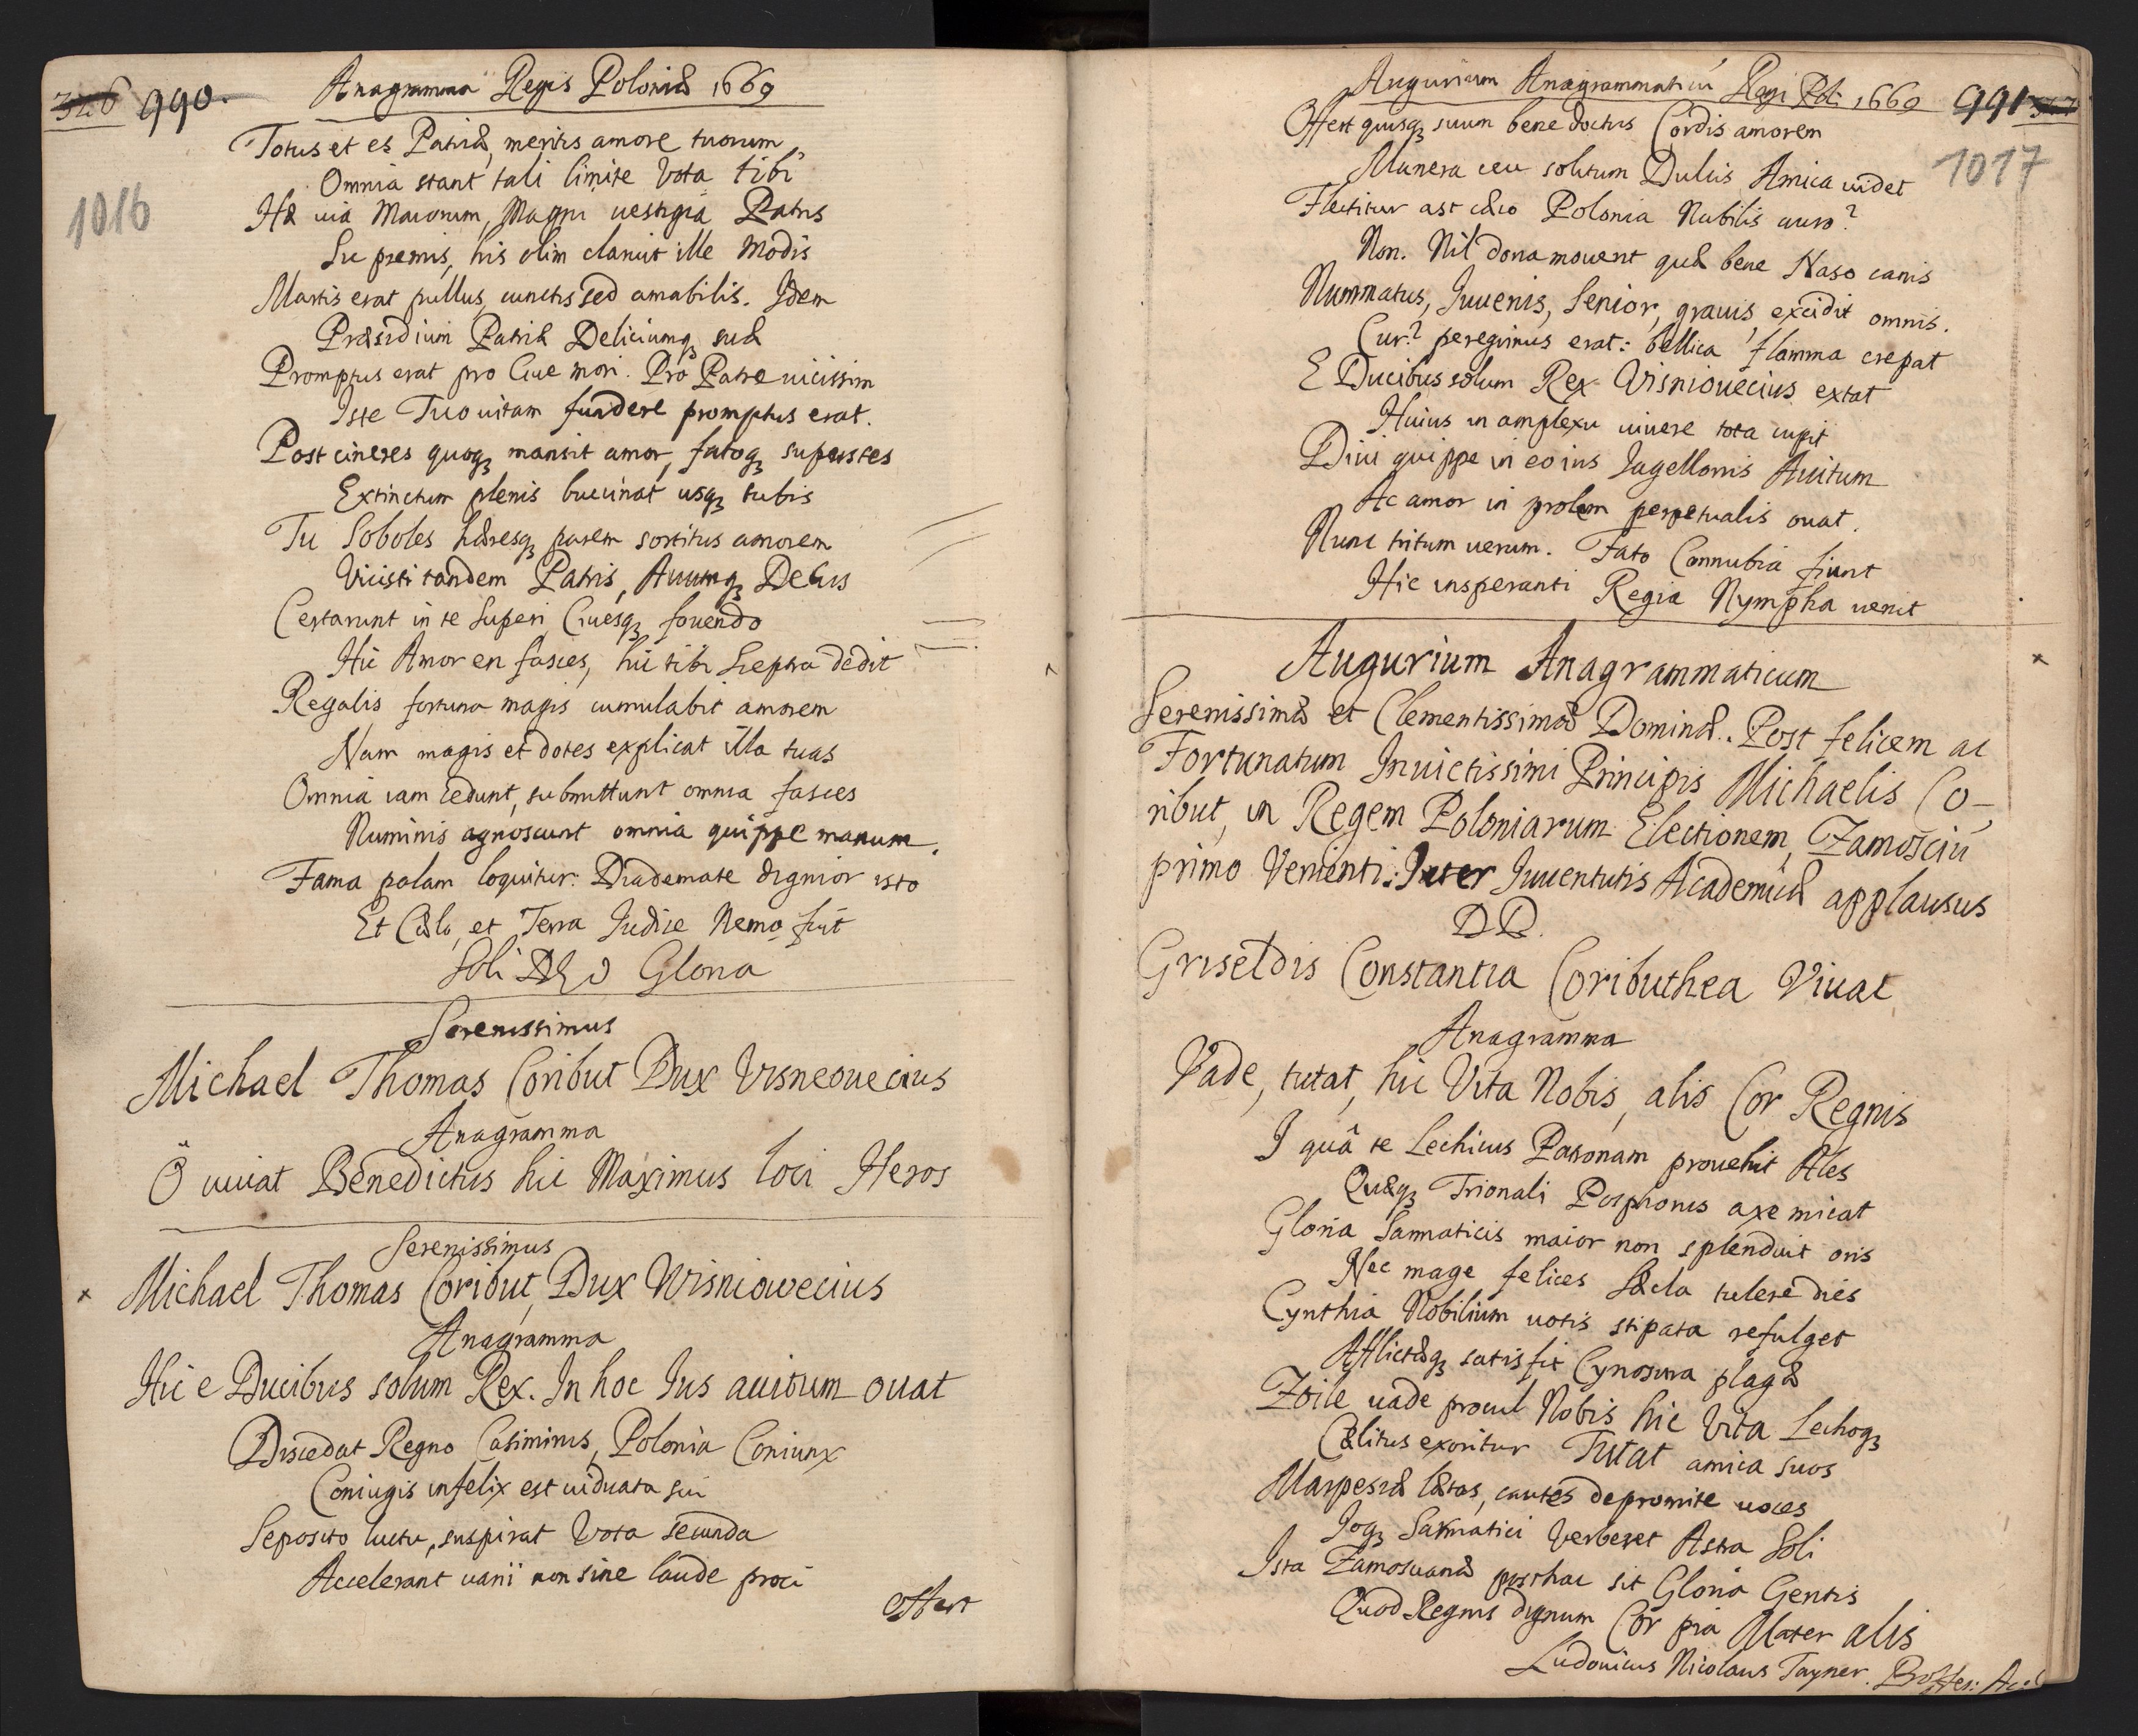 326 990. Anagramma Regis Poloniæ 1669
1016
Totus et es Patriæ, meritis amore tuorum,
Omnia stant tali limite Vota tibi
Hæ uia Maiorum, Magni uestigia Patris
Su premis, his olim claruit ille Modis
Martis erat pullus, cunctis sed amabilis. Idem
Præsidium Patriæ Deliciumqꝫ suæ
Promptus erat pro Ciue mori. Pro Patre uicissim
Iste Tuo uitam fundere promptus erat.
Post cineres quoqꝫ mansit amor, fatoqꝫ superstes
Extinctum plenis buccinat usqꝫ tubis
Tu Soboles hæresqꝫ parem sortitus amorem
Vicisti tandem Patris, Auumqꝫ Decus
Certarunt in te Superi Ciuesqꝫ fouendo
Hic Amor en fasces, hic tibi Sceptra dedit
Regalis fortuna magis cumulabit amorem
Nam magis et dotes explicat illa tuas
Omnia iam cedunt, submittunt omnia fasces
Numinis agnoscunt omnia quippe manum.
Fama palam loquitur: Diademate dignior isto
Et Cælo, et Terra Iudice Nemo fuit
Soli DEO Gloria
Serenissimus
Michael Thomas Coribut Dux Visneouecius
Anagramma
O uiuat Benedictus hic Maximus loci Heros
Serenissimus
× Michael Thomas Coribut, Dux Wisniowecius
Anagramma
Hic e Ducibus solum Rex. In hoc Ius auitum ouat
Discedat Regno Casimirus, Polonia Coniunx
Coniugis infelix est uiduata sui
Seposito luctu, suspirat Vota secunda
Accelerant uarii non sine laude proci
offert
Augurium Anagrammaticū Regi Pol: 1669 991 327
1017
Offert quisqꝫ suum bene doctus Cordis amorem
Munera ceu solitum Dulcis Amica uidet
Flectitur ast cæco Polonia Nubilis auro?
Non. Nil dona mouent quæ bene Naso canis
Nummatus, Iuuenis, Senior, grauis, excidit omnis.
Cur? peregrinus erat: bellica flamma crepat
E Ducibus solum Rex Visniouecius extat
Huius in amplexu uiuere tota cupit
Diui quippe in eo ius Jagellonis Auitum
Ac amor in prolem perpetualis ouat.
Nunc tritum uerum. Fato Connubia fiunt
Hic insperanti Regia Nympha uenit
Augurium Anagrammaticum ×
Serenissimæ et Clementissimæ Dominæ. Post felicem ac
Fortunatum Inuictissimi Principis Michaelis Co-
ribut, in Regem Poloniarum Electionem, Zamosciū
primo Venienti: Inter Iuuentutis Academicæ applausus
DD.
Griseldis Constantia Coributhea Viuat
Anagramma
Vade, tutat, hic Vita Nobis, alis Cor Regnis
I quâ te Lechicus Patronam prouehit Ales
Quæqꝫ Trionali Posphorus axe micat
Gloria Sarmaticis maior non splenduit oris
Nec mage felices Sæcla tulere dies
Cynthia Nobilium uotis stipata refulget
Afflictæqꝫ satis fit Cynosura plagæ
Zoile uade procul Nobis hic Vita Lechoqꝫ
Cælitus exoritur Tutat amica suos
Marpesiæ lætas, cautes depromite uoces
Ioqꝫ Sarmatici Verberet Astra Soli
Ista Zamoscianæ posthac sit Gloria Gentis
Quod Regnis dignum Cor pia Mater alis
Ludouicus Nicolaus Tayner. Profes: Acad